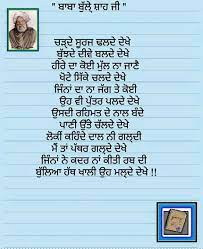 " ਬਾਬਾ ਬੁੱਲ੍ਹੇ ਸ਼ਾਹ ਜੀ "
ਚੜ੍ਦੇ ਸੂਰਜ ਢਲਦੇ ਦੇਖੇ
ਬੁੱਝਦੇ ਦੀਵੇ ਬਲਦੇ ਦੇਖੇ
ਹੀਰੇ ਦਾ ਕੋਈ ਮੁੱਲ ਨਾ ਜਾਣੇ
ਖੋਟੇ ਸਿੱਕੇ ਚਲਦੇ ਦੇਖੇ
ਜਿੰਨਾਂ ਦਾ ਨਾ ਜੱਗ ਤੇ ਕੋਈ
ਉਹ ਵੀ ਪੁੱਤਰ ਪਲਦੇ ਦੇਖੇ
ਉਸਦੀ ਰਹਿਮਤ ਦੇ ਨਾਲ ਬੰਦੇ
ਪਾਣੀ ਉੱਤੇ ਚੱਲਦੇ ਦੇਖੇ
ਲੋਕੀਂ ਕਹਿੰਦੇ ਦਾਲ ਨੀ ਗਲ੍ਦੀ
ਮੈਂ ਤਾਂ ਪੱਥਰ ਗਲ੍ਦੇ ਦੇਖੇ
ਜਿੰਨਾਂ ਨੇ ਕਦਰ ਨਾਂ ਕੀਤੀ ਰਬ ਦੀ
ਬੁੱਲਿਆ ਹੱਥ ਖਾਲੀ ਉਹ ਮਲ੍ਦੇ ਦੇਖੇ !!